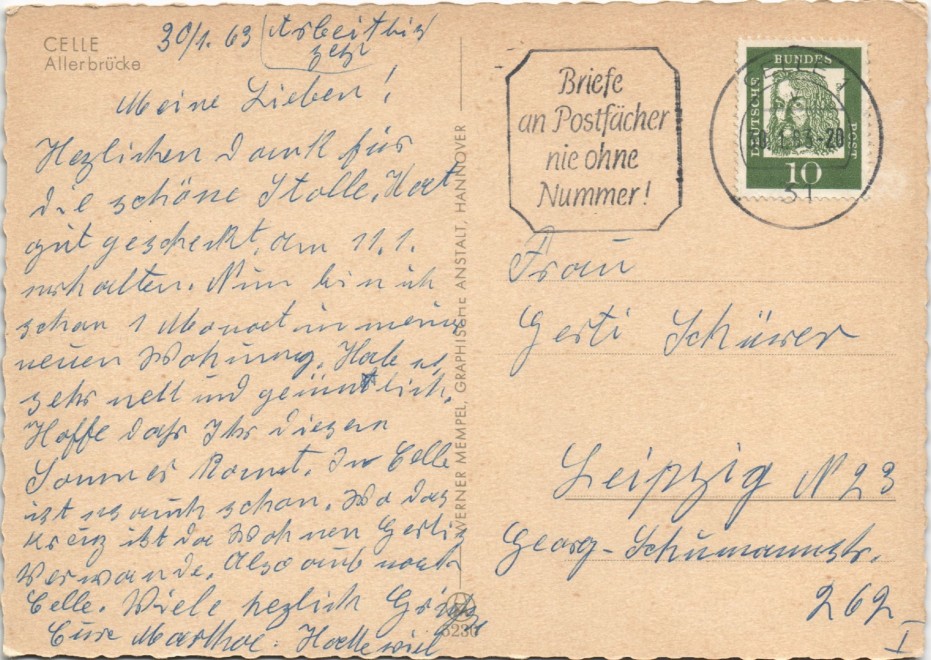 CELLE
Allerbrücke
30/1. 63 Arbeit bis
zehr
Meine Lieben!
Hezlichen Dank für
die schöne Stolle, Hat
gut gescheckt, am 11.1.
erhalten. Nun bin ich
schon 1 Monat in meine
neuen Wohnung. Habe es
sehr nett und gemütlich.
Hoffe dass Ihr diesen
Sommer komt. In Celle
ist es auch schon. Wo das
Kreuz ist da Wohnen Gertis
Verwande. Also aub nach
Celle. Viele hezlich Grüsse
Eure Marthae. Hatte viel
WERNER MEMPEL, GRAPHISCHE ANSTALT, HANNOVER
5236
Briefe
an Postfächer
nie ohne
Nummer!
DEUTSCHE BUNDES POST
10
1.63-20
31
Frau
Gerti Schürer
Leipzig N 23
Georg-Schumannstr.
262
I